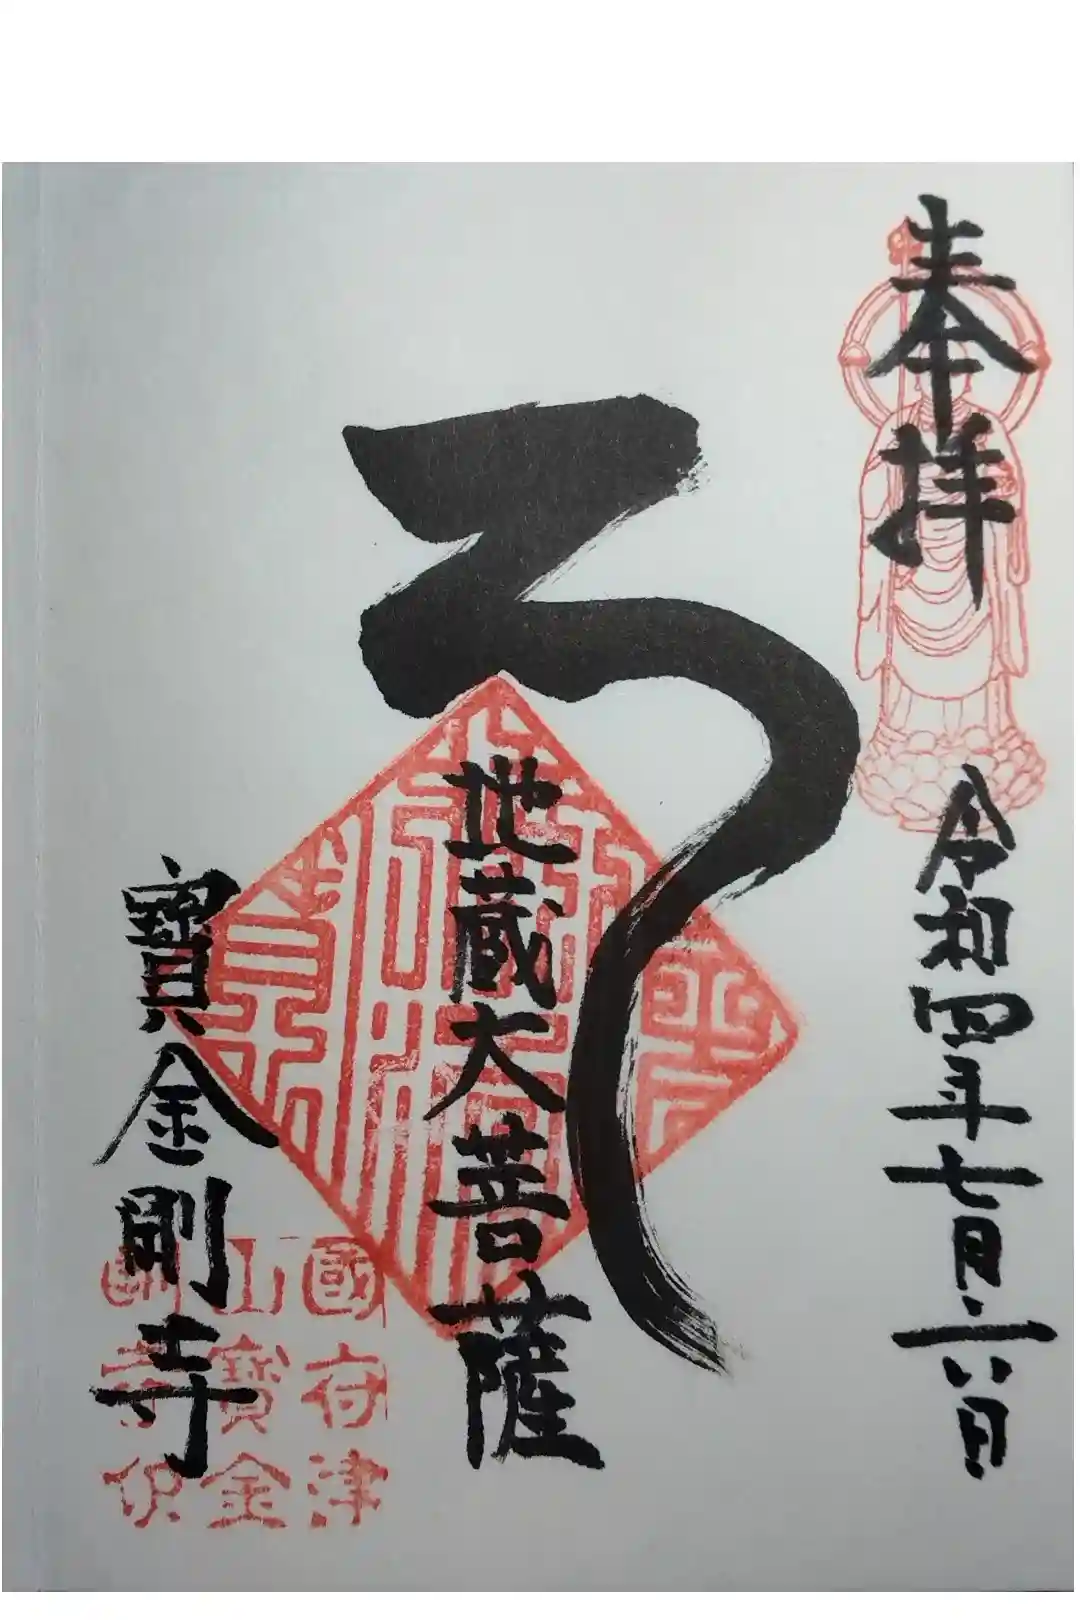 奉拝
令和四年七月六日
地蔵大菩薩
寶金剛寺
國府津
山寶金
剛寺印